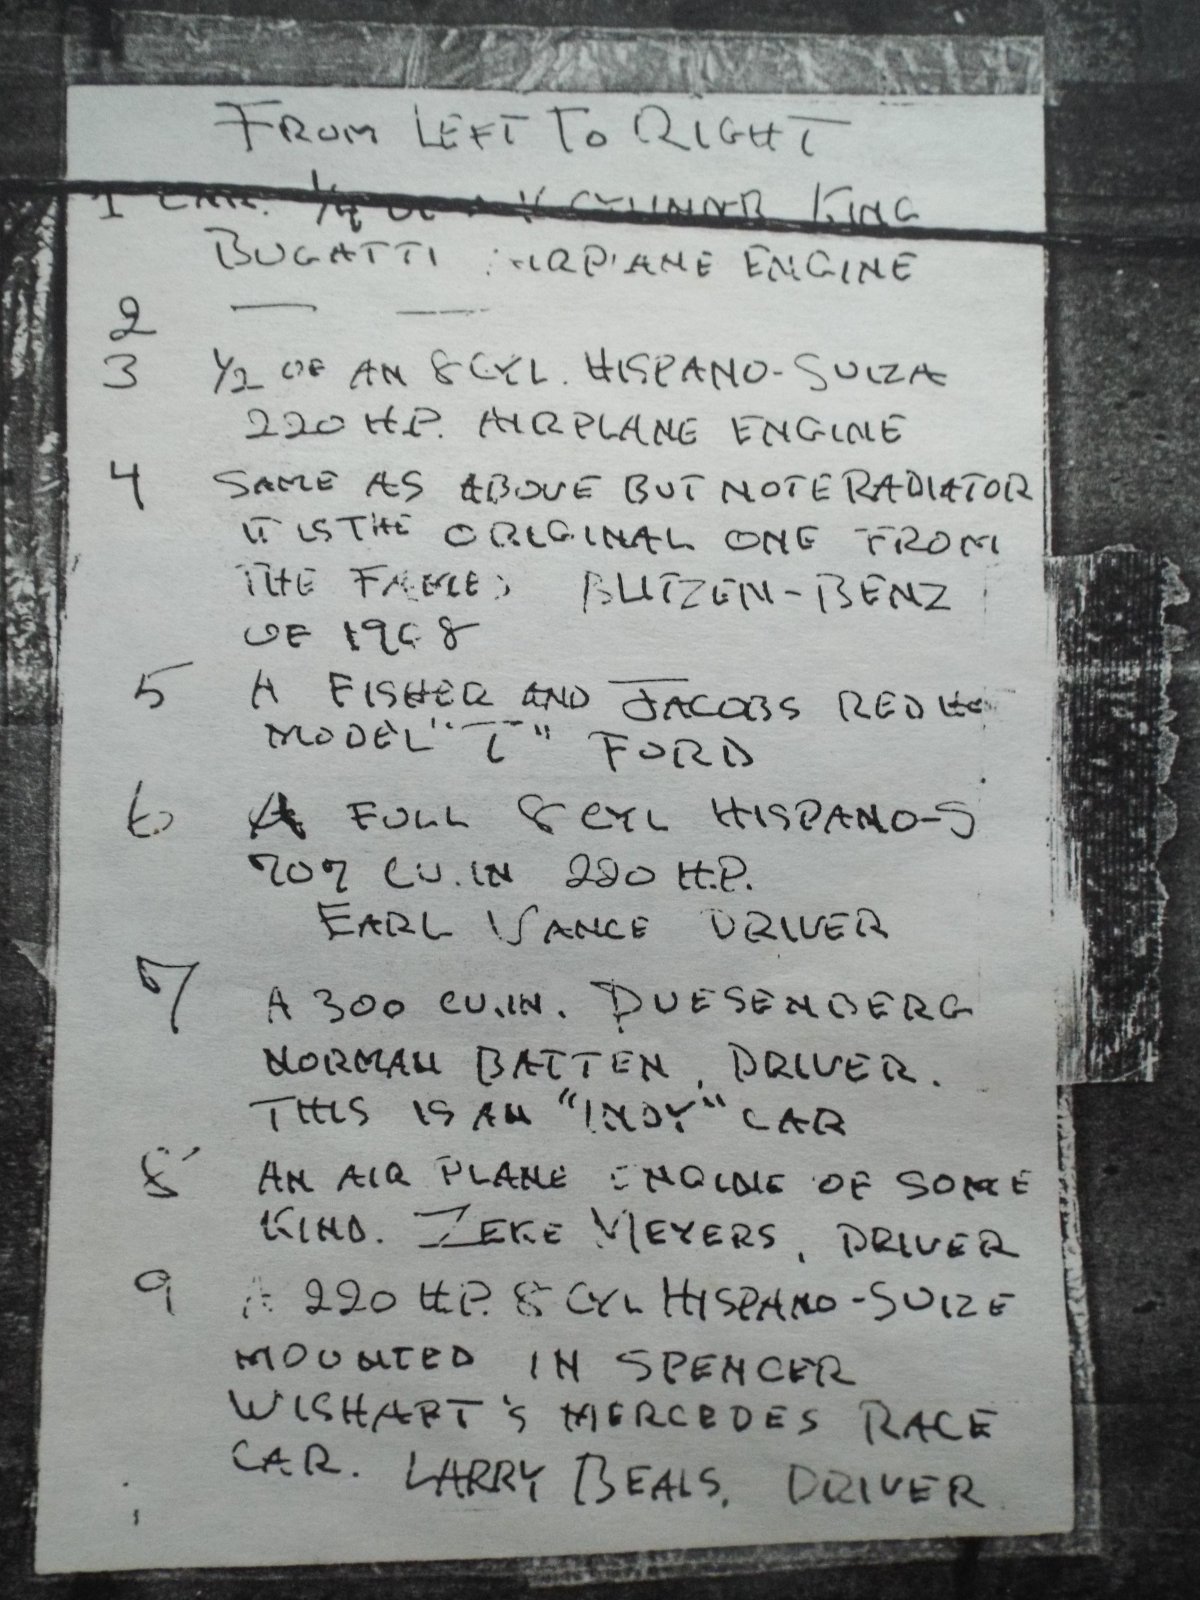 FROM LEFT TO RIGHT
1 CAR. 1/2 OF CYLINDER KING
BUGATTI AIRPLANE ENGINE
2 — —
3 1/2 OF AN 8 CYL. HISPANO-SUIZA
220 H.P. AIRPLANE ENGINE
4 SAME AS ABOVE BUT NOTE RADIATOR
IT IS THE ORIGINAL ONE FROM
THE BLITZEN-BENZ
OF 1908
5 A FISHER AND JACOBS RED
MODEL "T" FORD
6 A FULL 8 CYL HISPANO-S
707 CU.IN 220 H.P.
EARL VANCE DRIVER
7 A 300 CU.IN. DUESENBERG
NORMAN BATTEN, DRIVER.
THIS IS AN "INDY" CAR
8 AN AIR PLANE ENGINE OF SOME
KIND. ZEKE MEYERS, DRIVER
9 A 220 H.P. 8 CYL HISPANO-SUIZE
MOUNTED IN SPENCER
WISHART'S MERCEDES RACE
CAR. LARRY BEALS, DRIVER